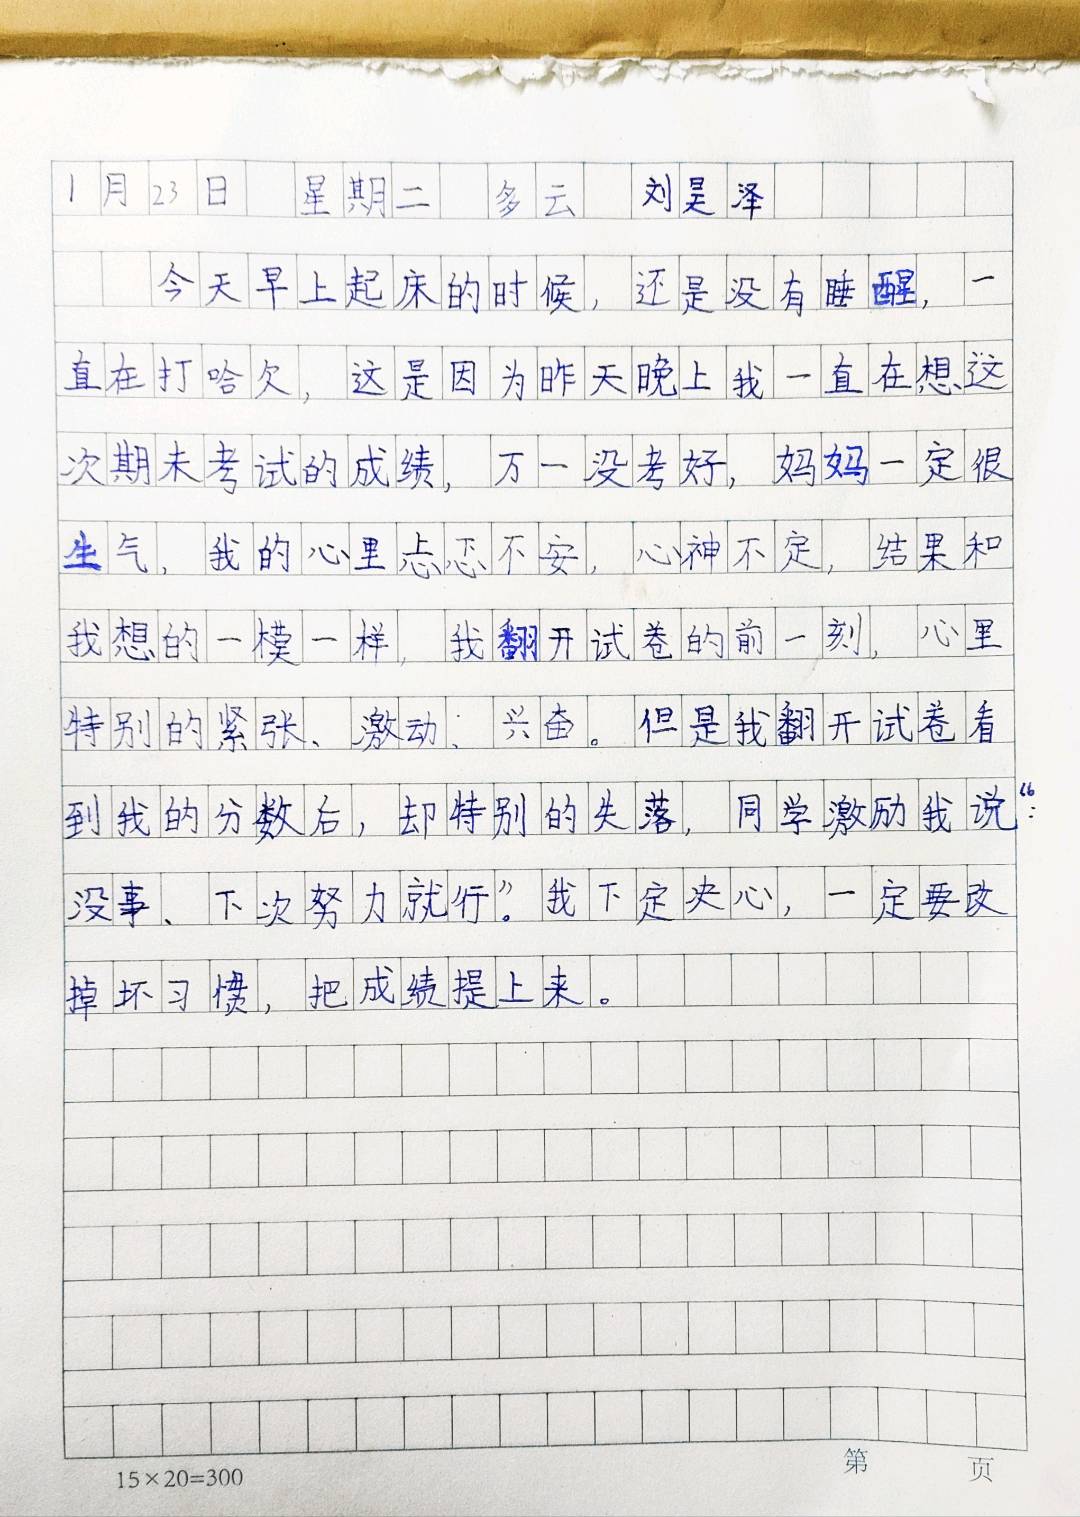 1月23日 星期二 多云 刘昊泽
今天早上起床的时候，还是没有睡醒，一
直在打哈欠，这是因为昨天晚上我一直在想这
次期末考试的成绩，万一没考好，妈妈一定很
生气，我的心里忐忑不安，心神不定，结果和
我想的一模一样，我翻开试卷的前一刻，心里
特别的紧张、激动、兴奋。但是我翻开试卷看
到我的分数后，却特别的失落，同学激励我说：“
没事、下次努力就行”。我下定决心，一定要改
掉坏习惯，把成绩提上来。
15×20=300
第 页